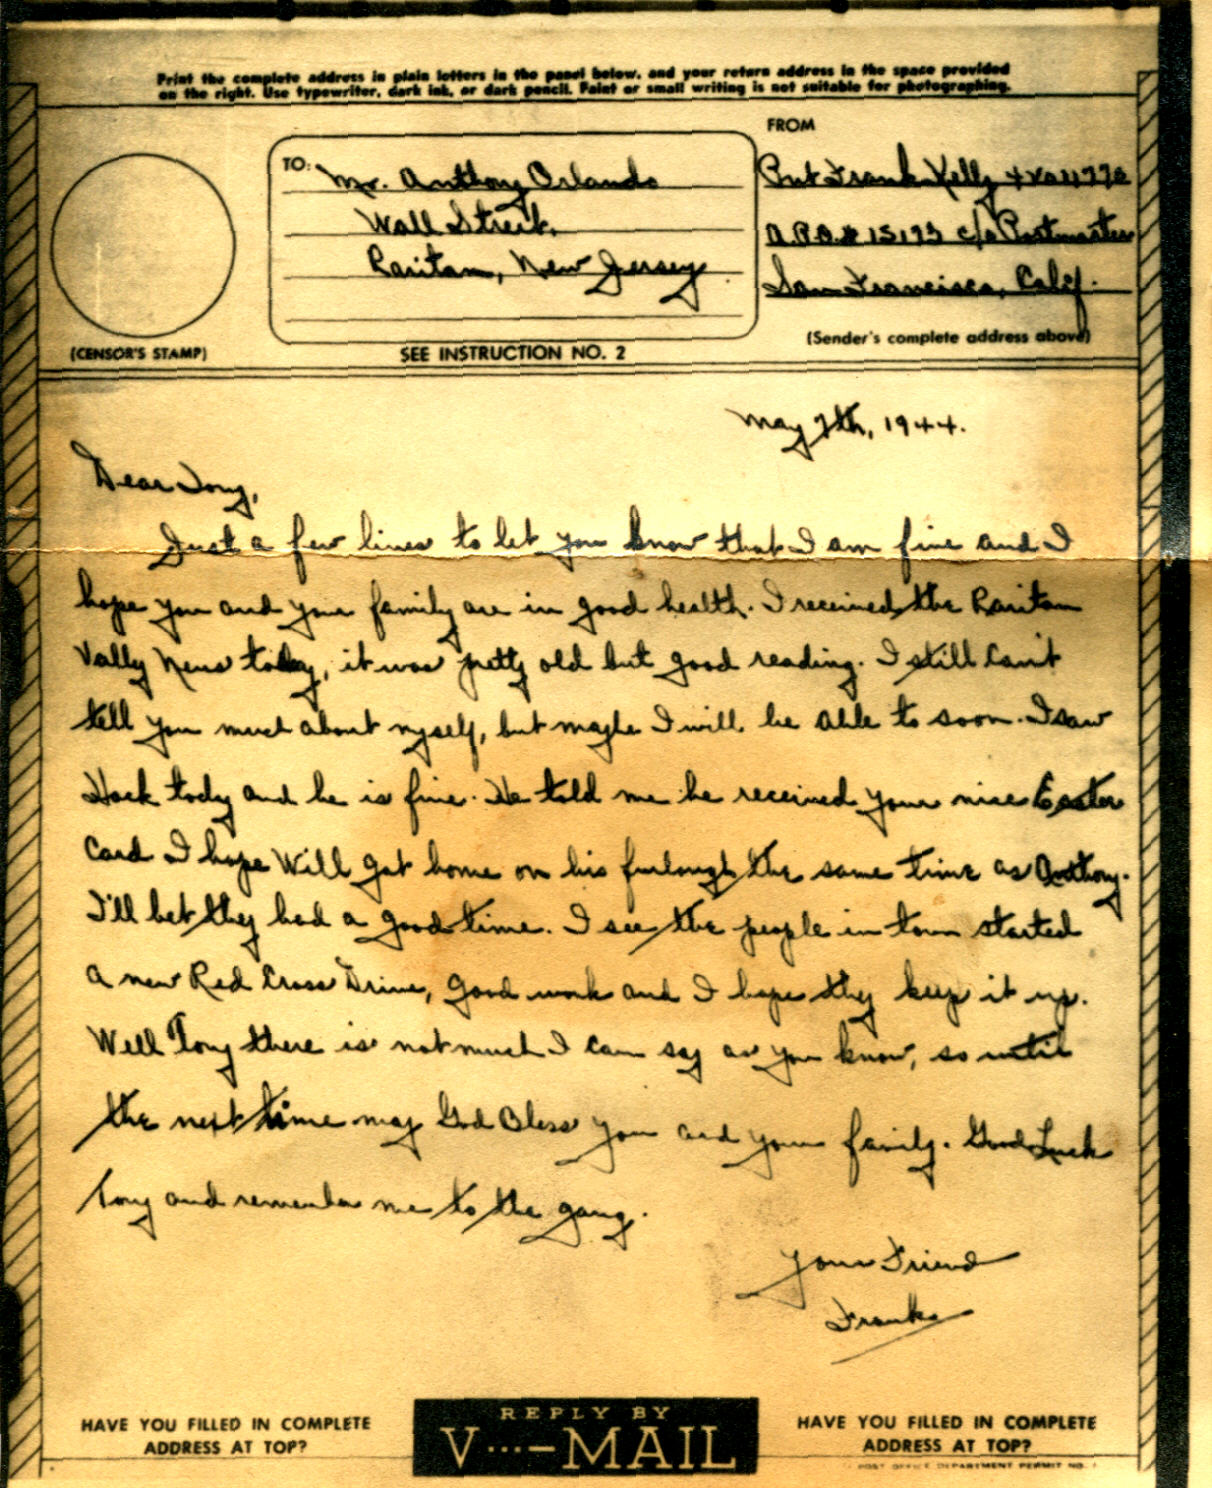 Print the complete address in plain letters in the panel below, and your return address in the space provided
on the right. Use typewriter, dark ink, or dark pencil. Faint or small writing is not suitable for photographing.
FROM
TO: Mr. Anthony Orlando
Wall Street,
Raritan, New Jersey
Pvt Frank Kelly
A.P.O.# 15193 c/o Postmaster
San Francisco, Calif.
(Sender's complete address above)
(CENSOR'S STAMP)
SEE INSTRUCTION NO. 2
May 7th, 1944.
Dear Tony,
Just a few lines to let you know that I am fine and I
hope you and your family are in good health. I received the Raritan
Vally News today, it was pretty old but good reading. I still can't
tell you much about myself, but maybe I will be able to soon. I saw
Hock today and he is fine. He told me he received your nice Easter
Card I hope Will got home on his furlough the same time as Anthony.
I'll bet they had a good time. I see the people in town started
a new Red Cross Drive, good work and I hope they keep it up.
Well Tony there is not much I can say as you know, so until
the next time may God Bless you and your family. Good Luck
Tony and remember me to the gang.
Your Friend
Frank
HAVE YOU FILLED IN COMPLETE
ADDRESS AT TOP?
REPLY BY
V···—MAIL
HAVE YOU FILLED IN COMPLETE
ADDRESS AT TOP?
POST OFFICE DEPARTMENT PERMIT NO.